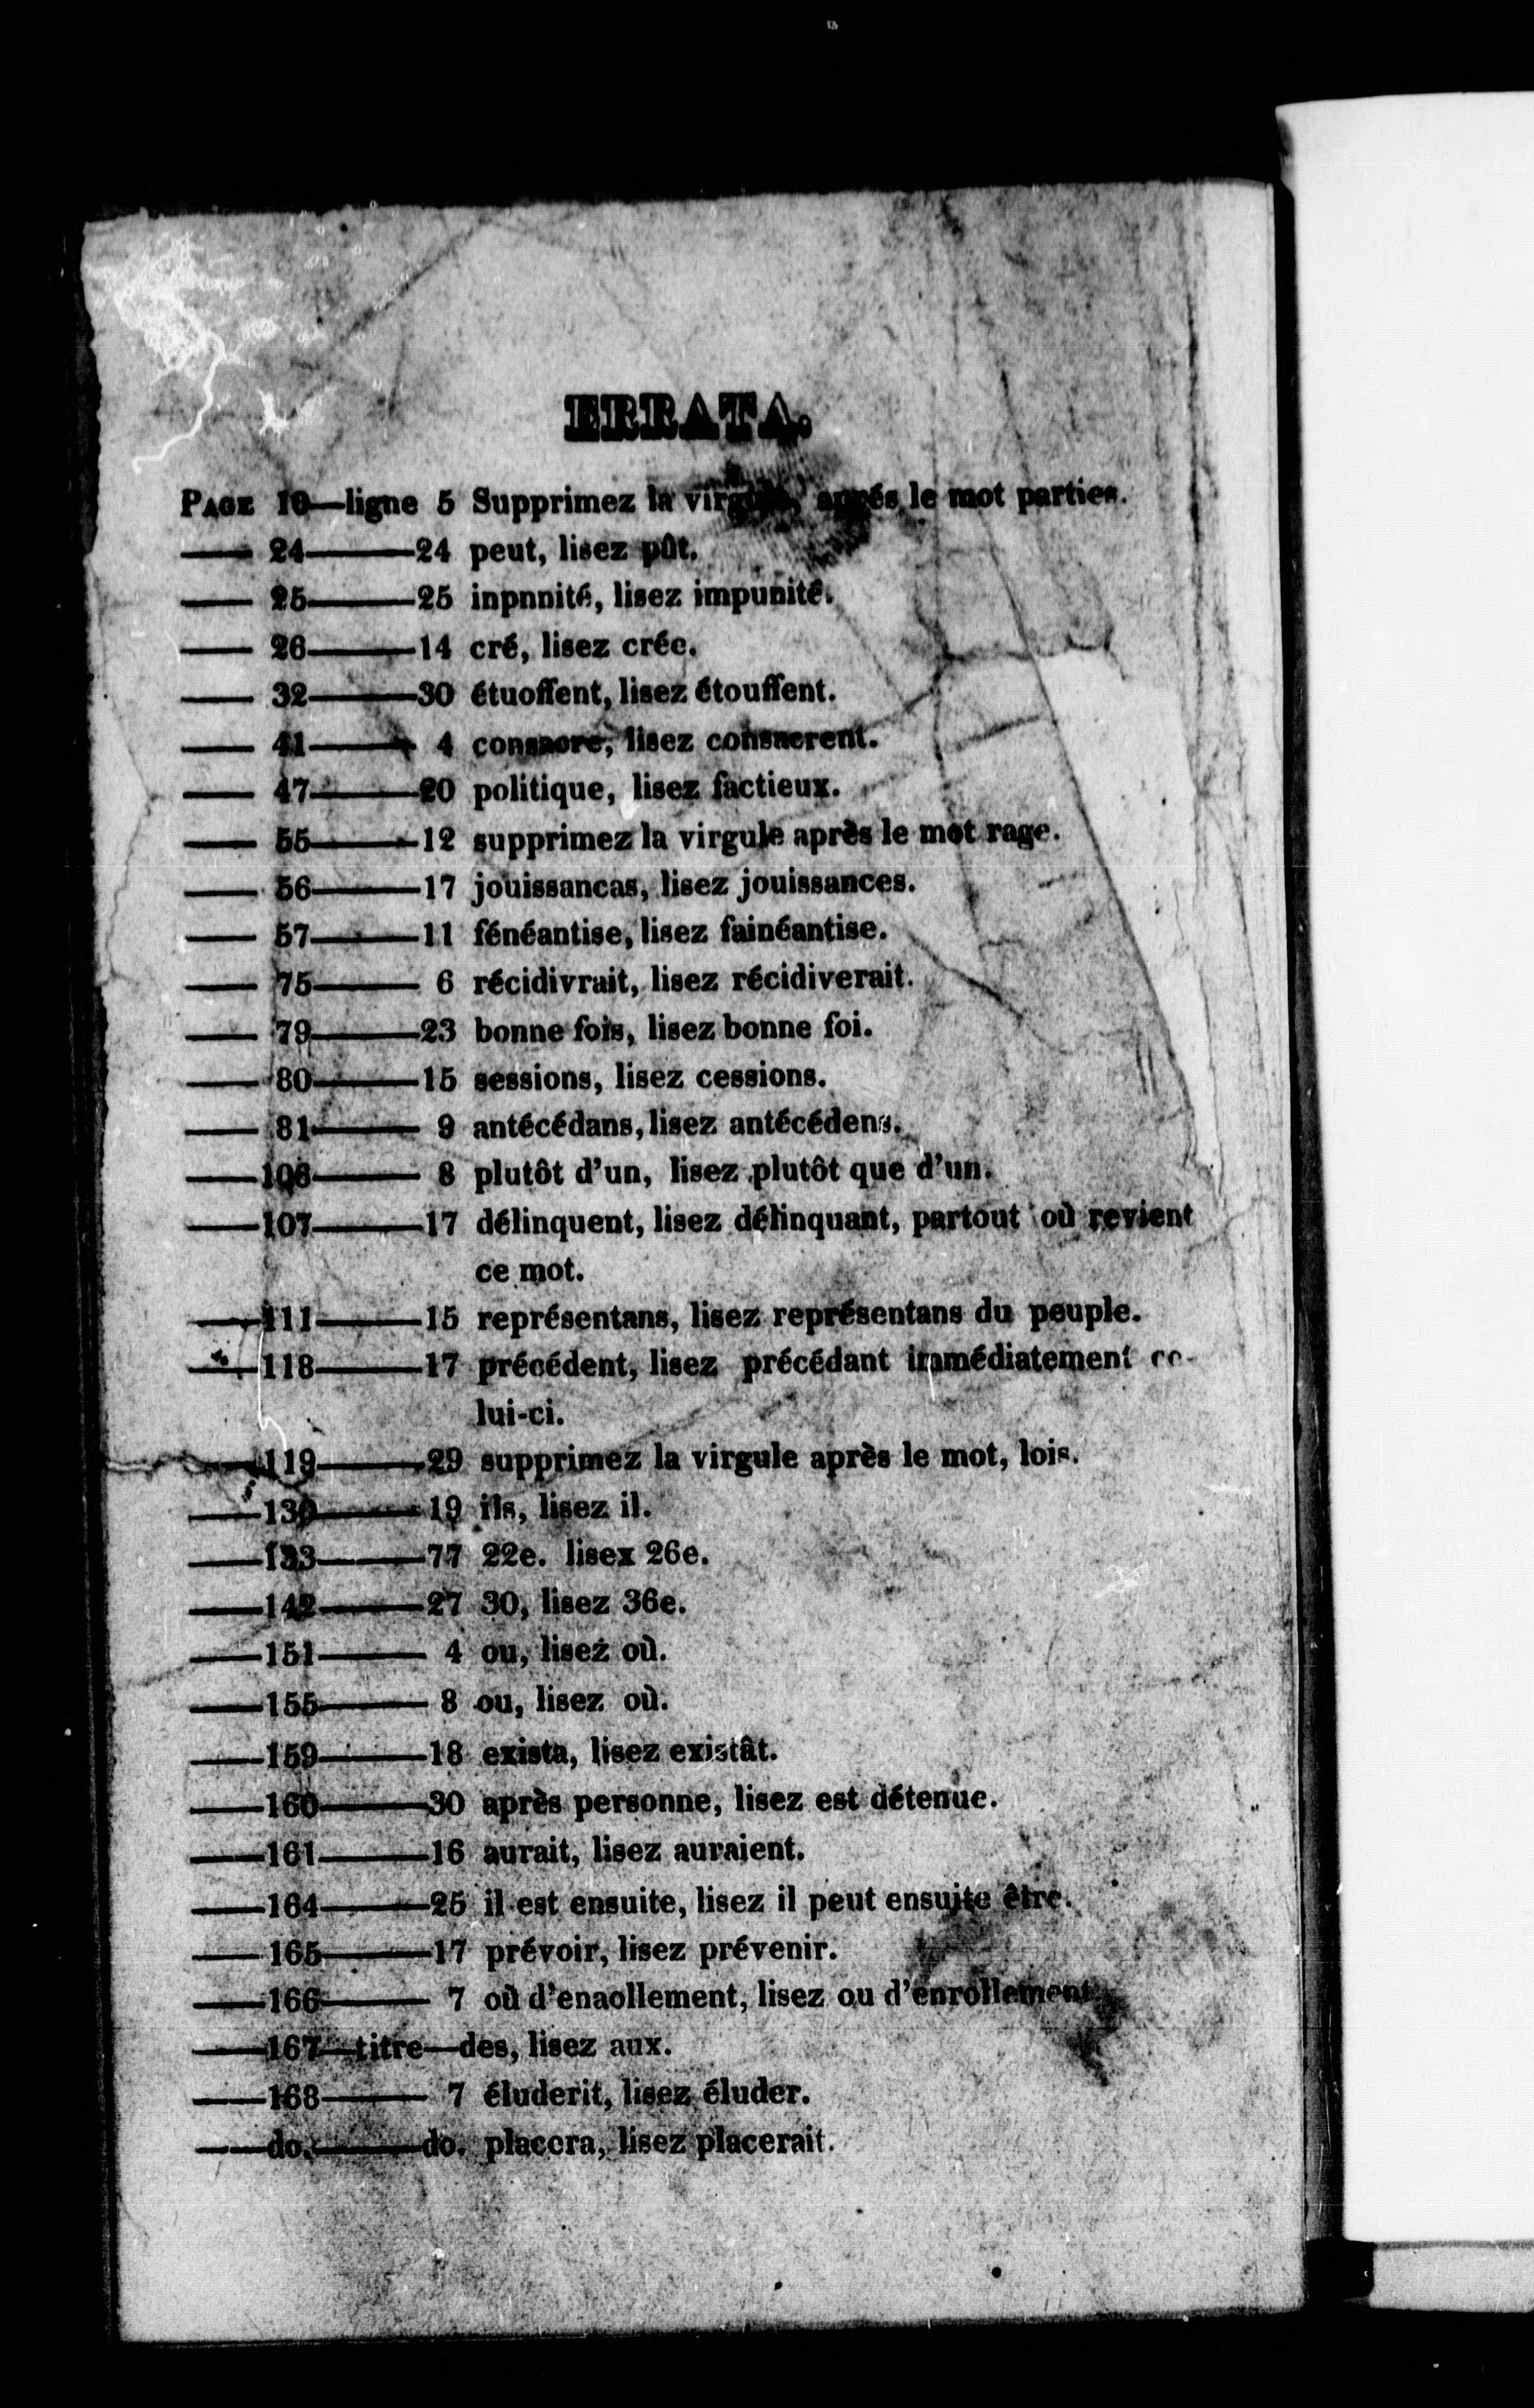 ERRATA.
PAGE 10—ligne 5 Supprimez la virgule, aprés le mot parties.
—— 24———24 peut, lisez pût.
—— 25———25 inpnnité, lisez impunité.
—— 26———14 cré, lisez crée.
—— 32———30 étuoffent, lisez étouffent.
—— 41——— 4 consacre, lisez consacrent.
—— 47———20 politique, lisez factieux.
—— 55———12 supprimez la virgule après le mot rage.
—— 56———17 jouissancas, lisez jouissances.
—— 57———11 fénéantise, lisez fainéantise.
—— 75——— 6 récidivrait, lisez récidiverait.
—— 79———23 bonne fois, lisez bonne foi.
—— 80———15 sessions, lisez cessions.
—— 81——— 9 antécédans, lisez antécédens.
——106——— 8 plutôt d'un, lisez plutôt que d'un.
——107———17 délinquent, lisez délinquant, partout où revient
ce mot.
——111———15 représentans, lisez représentans du peuple.
——118———17 précédent, lisez précédant immédiatement ce-
lui-ci.
——119———29 supprimez la virgule après le mot, lois.
——130———19 ils, lisez il.
——133———77 22e. lisex 26e.
——142———27 30, lisez 36e.
——151——— 4 ou, lisez où.
——155——— 8 ou, lisez où.
——159———18 exista, lisez existât.
——160———30 après personne, lisez est détenue.
——161———16 aurait, lisez auraient.
——164———25 il est ensuite, lisez il peut ensuite être.
——165———17 prévoir, lisez prévenir.
——166——— 7 où d'enaollement, lisez ou d'enrollement.
——167—titre—des, lisez aux.
——168——— 7 éluderit, lisez éluder.
——do.———do. placera, lisez placerait.